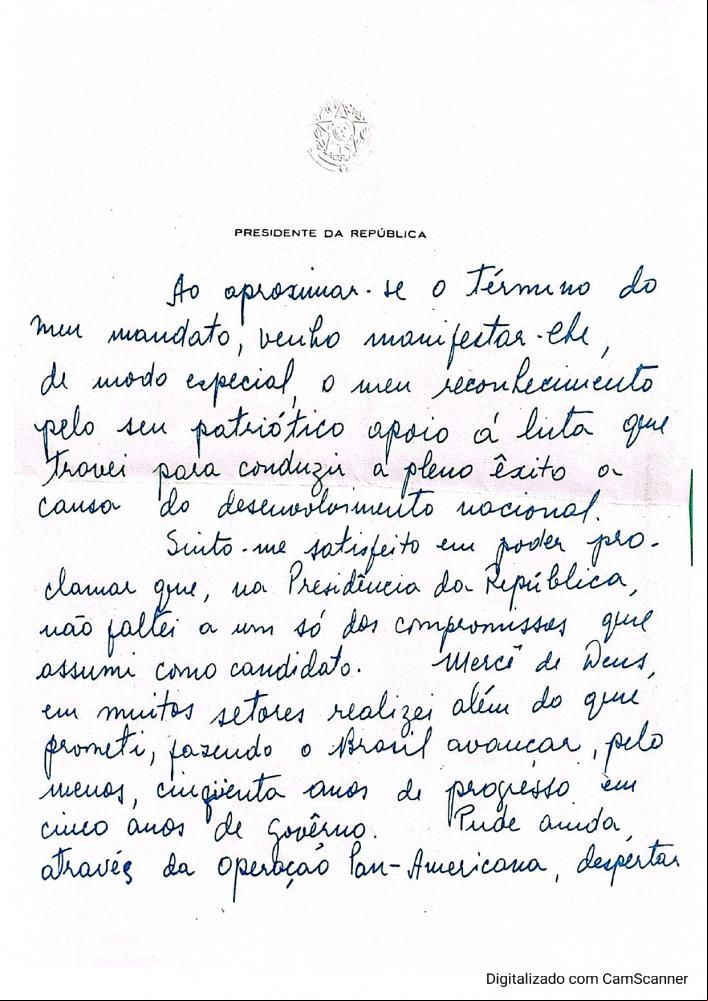 PRESIDENTE DA REPÚBLICA
Ao aproximar-se o término do
meu mandato, venho manifestar-lhe,
de modo especial, o meu reconhecimento
pelo seu patriótico apoio á luta que
travei para conduzir a pleno êxito a
causa do desenvolvimento nacional.
Sinto-me satisfeito em poder pro-
clamar que, na Presidência da República,
não faltei a um só dos compromissos que
assumi como candidato. Mercê de Deus,
em muitos setores realizei além do que
prometi, fazendo o Brasil avançar, pelo
menos, cinqüenta anos de progresso em
cinco anos de govêrno. Pude ainda,
através da Operação Pan-Americana, despertar
Digitalizado com CamScanner